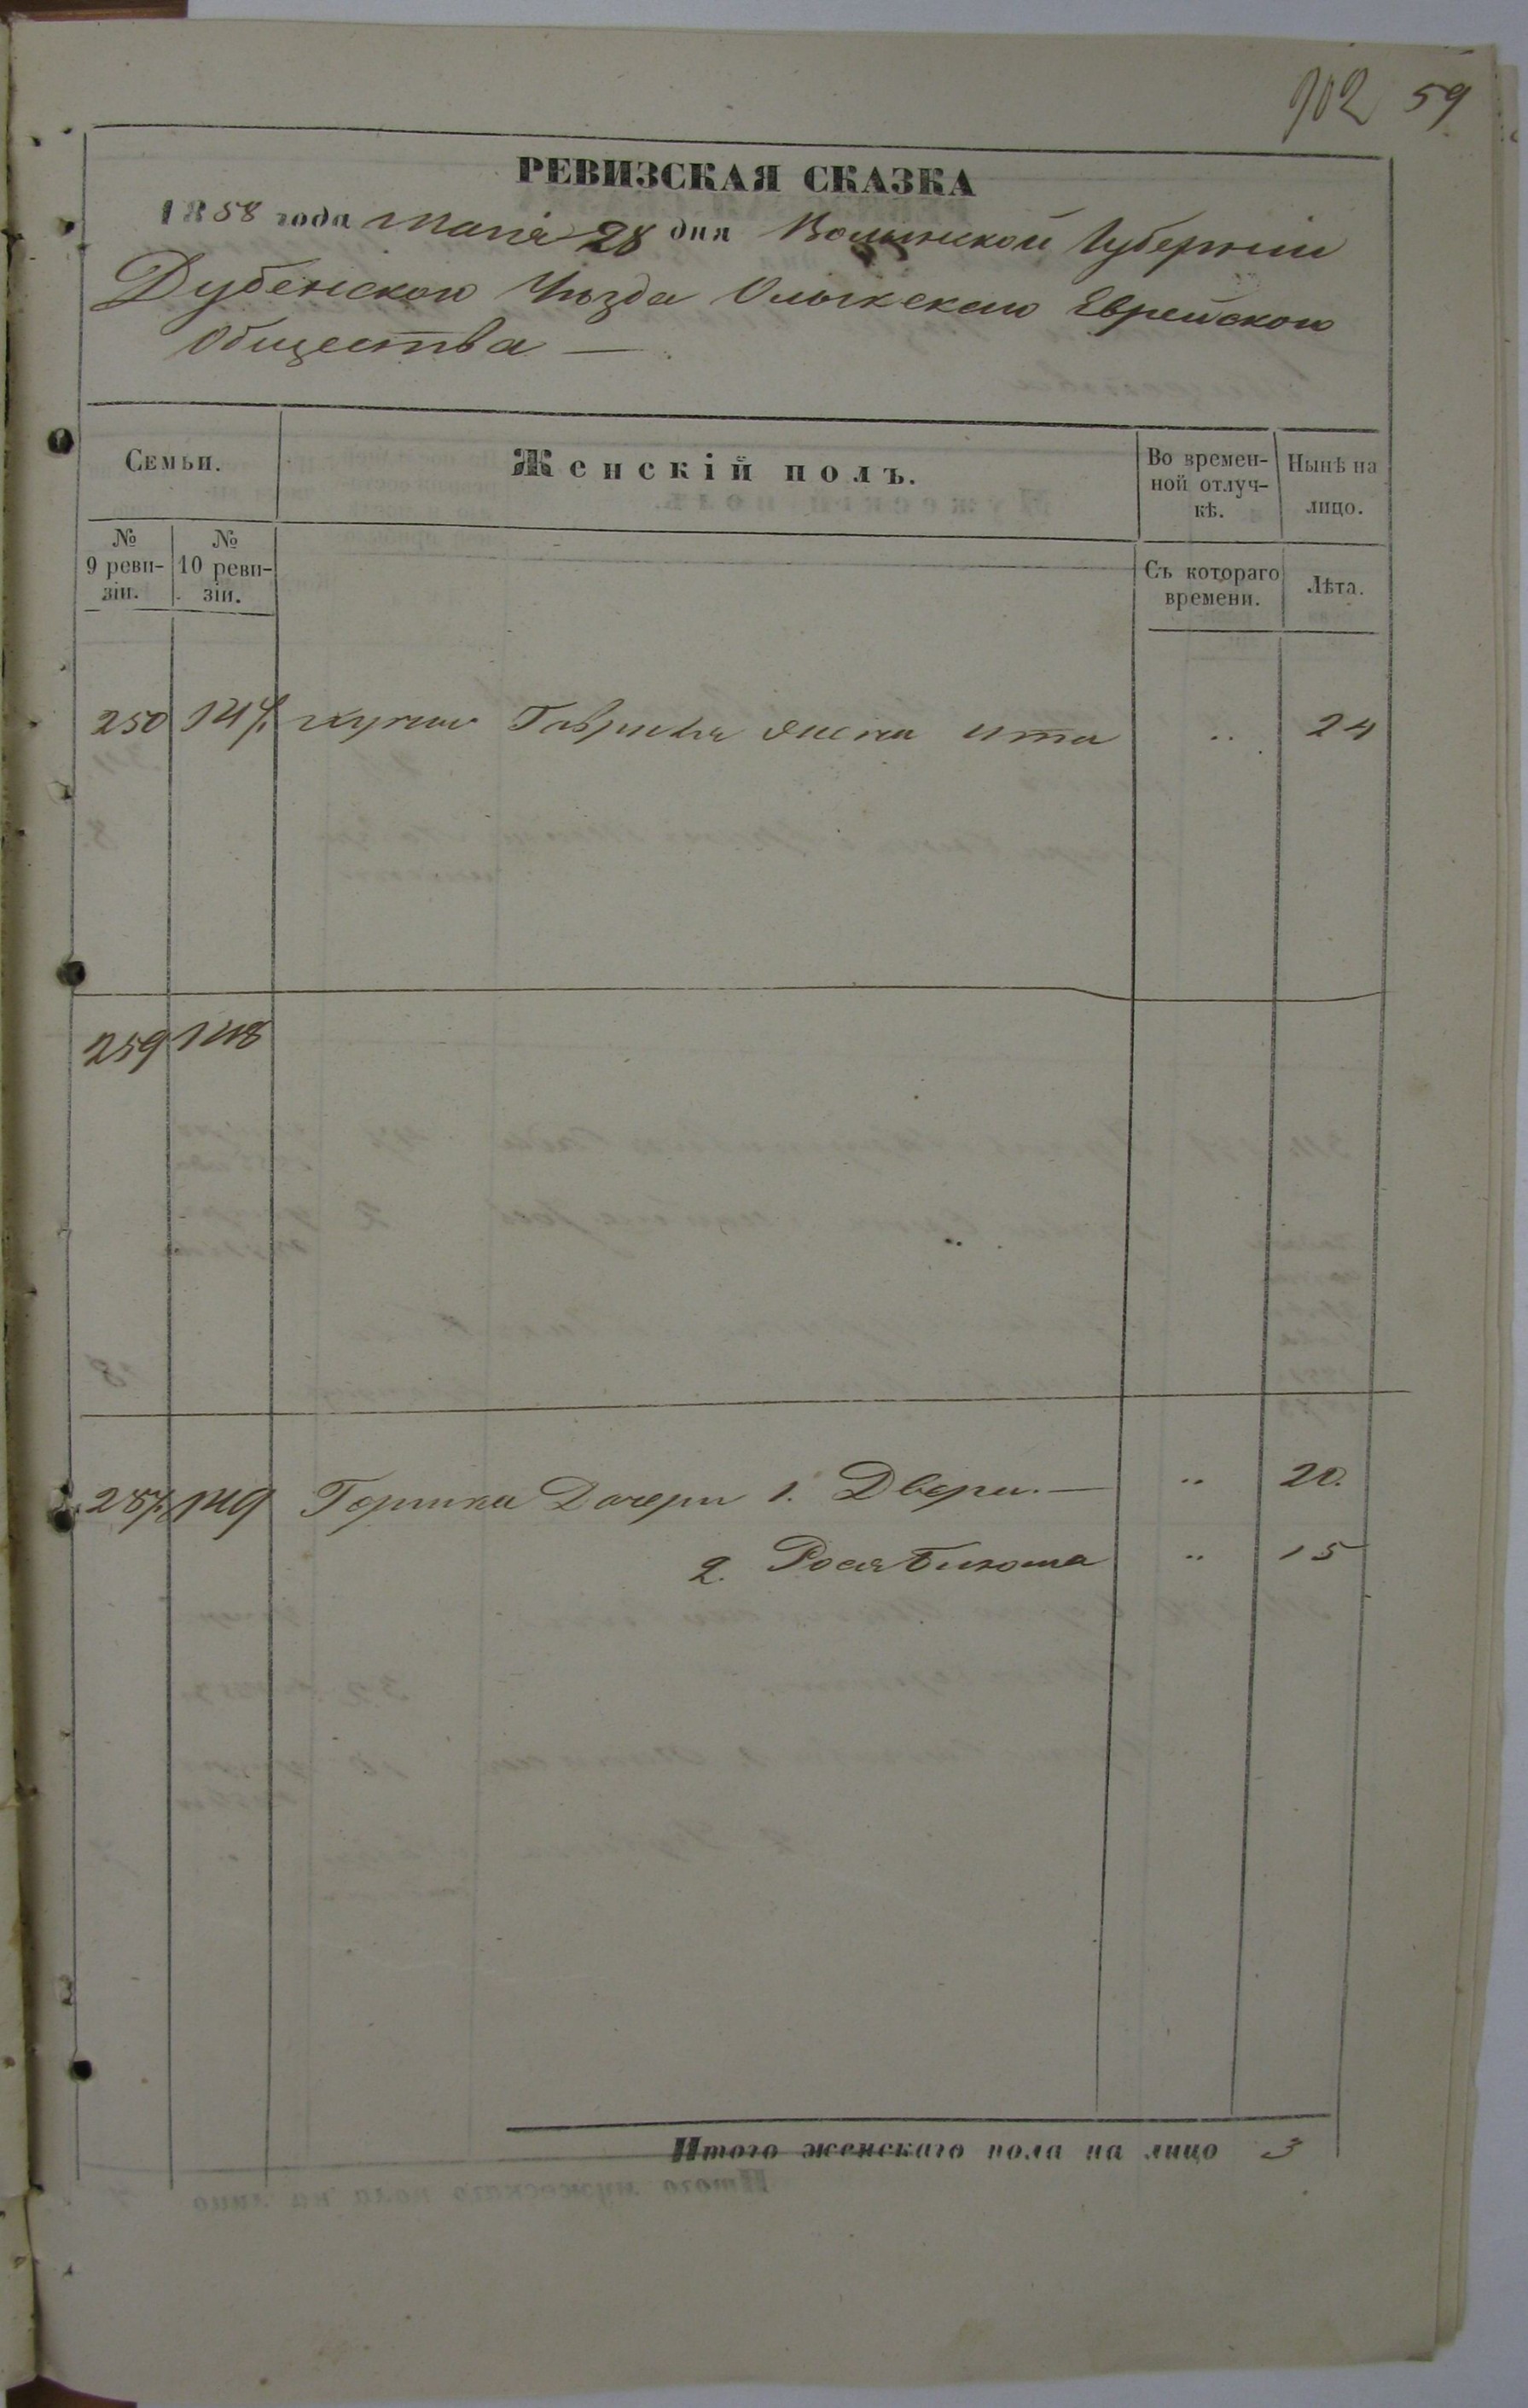 902 59
РЕВИЗСКАЯ СКАЗКА
1858 года Маия 28 дня Волынской Губернии
Дубенского Уѣзда Олыкскаго Еврейского
Общества —
Семьи.
Женскій полъ.
Во времен-
ной отлуч-
кѣ.
Нынѣ на
лицо.
№
9 реви-
зіи.
№
10 реви-
зіи.
Съ котораго
времени.
Лѣта.
250 147 Гаврила жена Ита .. 24
259 148
287 149 Гершка Дочери 1. Двера. — .. 20.
2. Рося .. 15
Итого женскаго пола на лицо 3